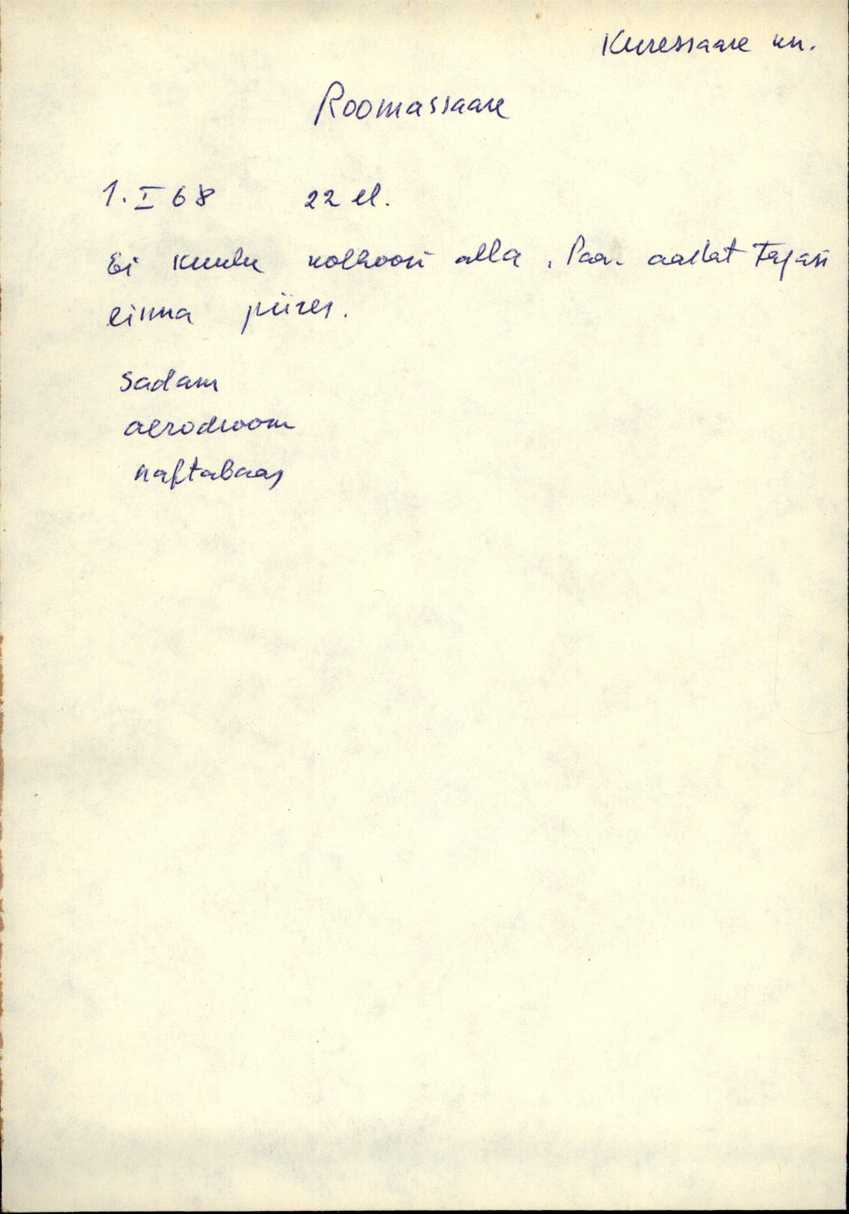 Kuressaare kn.
Roomassaare
1. I 68 22 el.
Ei kuulu kolhoosi alla. Paar aastat tagasi
linna piires.
sadam
aerodroom
naftabaas